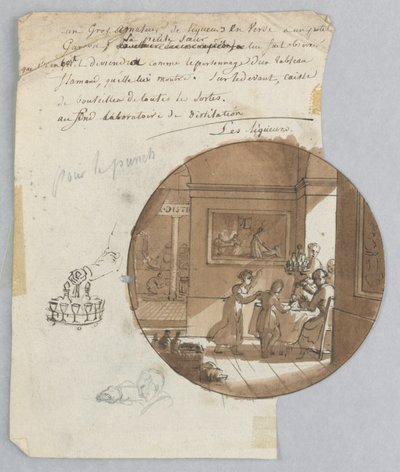 un Gros amateur de liqueurs En Verse a un petit
Garcon, la petite sœur lui fait
qu'il deviendra comme le personnage D'un tableau
flamand, quelle lui montre. Sur le devant, caisse
de bouteilles de toutes les Sortes.
au fond Laboratoire de Distilation
Les liqueurs.
pour le punch
DISTI